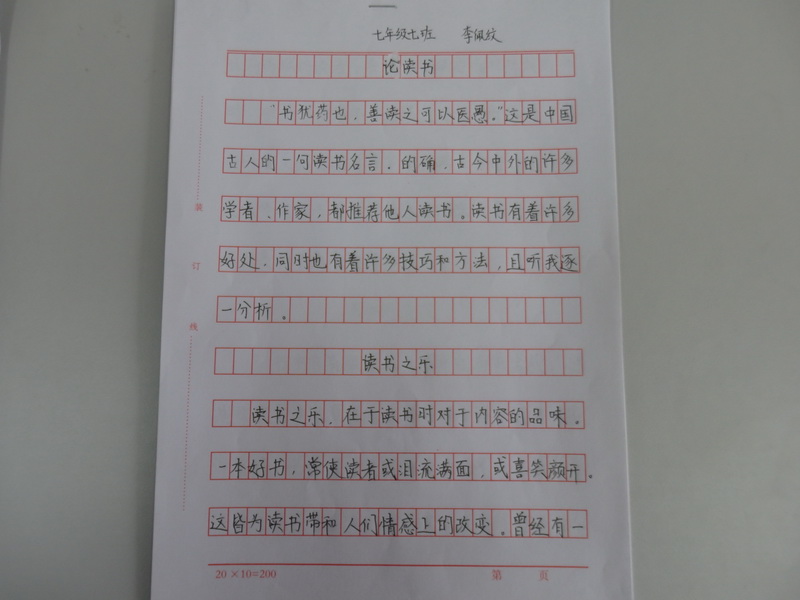 七年级七班 李佩纹
论读书
“书犹药也，善读之可以医愚。”这是中国
古人的一句读书名言，的确，古今中外的许多
学者、作家，都推荐他人读书。读书有着许多
好处，同时也有着许多技巧和方法，且听我逐
一分析。
读书之乐
读书之乐，在于读书时对于内容的品味。
一本好书，常使读者或泪流满面，或喜笑颜开。
这皆为读书带和人们情感上的改变。曾经有一
装
订
线
20×10=200 第 页